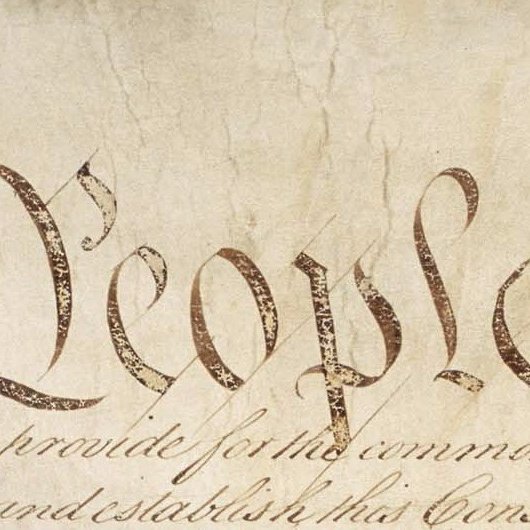 People
provide for the common
and establish this Con